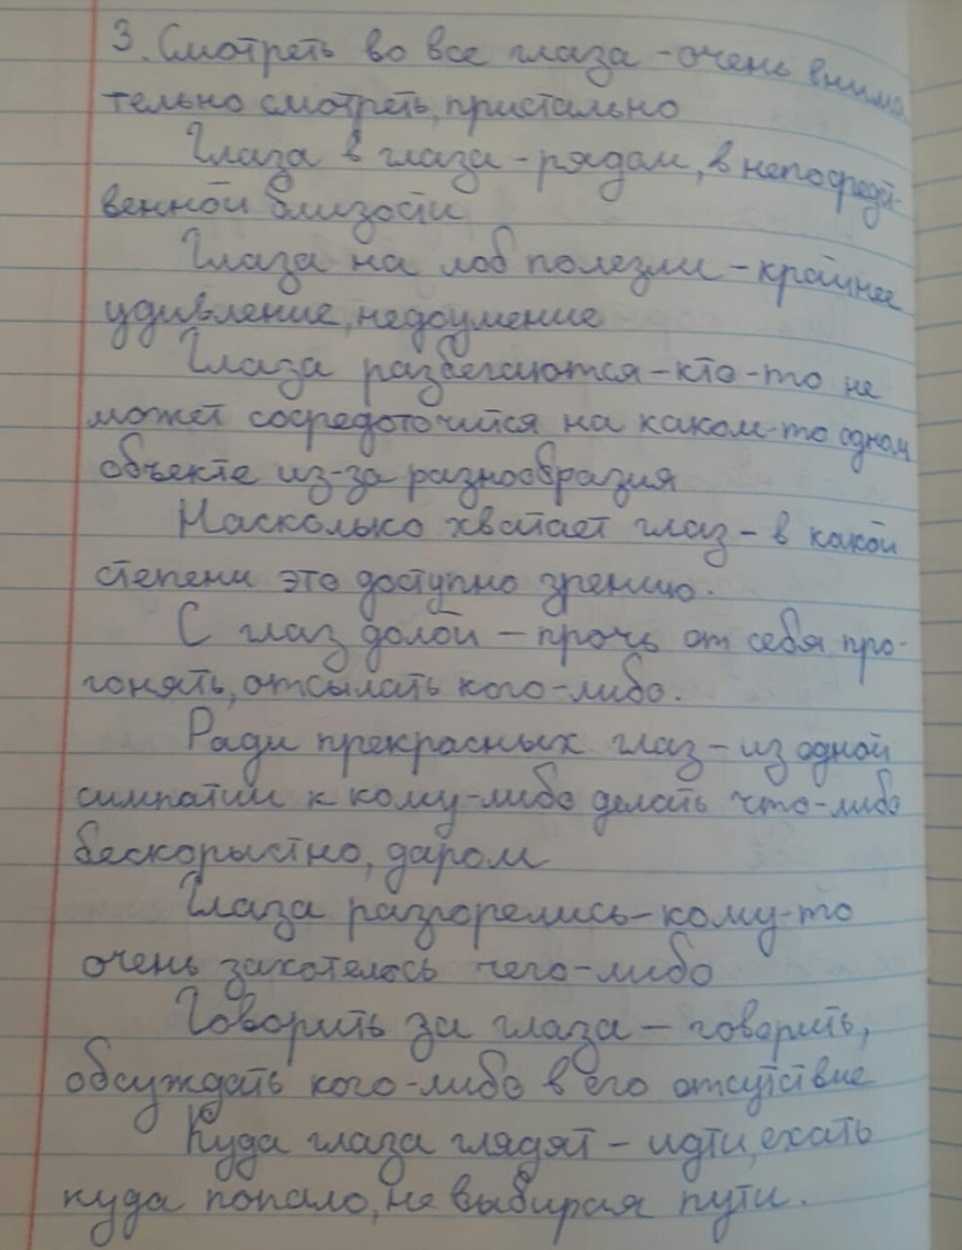 3. Смотреть во все глаза - очень внима
тельно смотреть, пристально
Глаза в глаза - рядом, в непосредст-
венной близости
Глаза на лоб полезли - крайнее
удивление, недоумение
Глаза разбегаются - кто-то не
может сосредоточится на каком-то одном
объекте из-за разнообразия
Насколько хватает глаз - в какой
степени это доступно зрению.
С глаз долой - прочь от себя про-
гонять, отсылать кого-либо.
Ради прекрасных глаз - из одной
симпатии к кому-либо делать что-либо
бескорыстно, даром
Глаза разгорелись - кому-то
очень захотелось чего-либо
Говорить за глаза - говорить,
обсуждать кого-либо в его отсутствие
Куда глаза глядят - идти, ехать
куда попало, не выбирая пути.